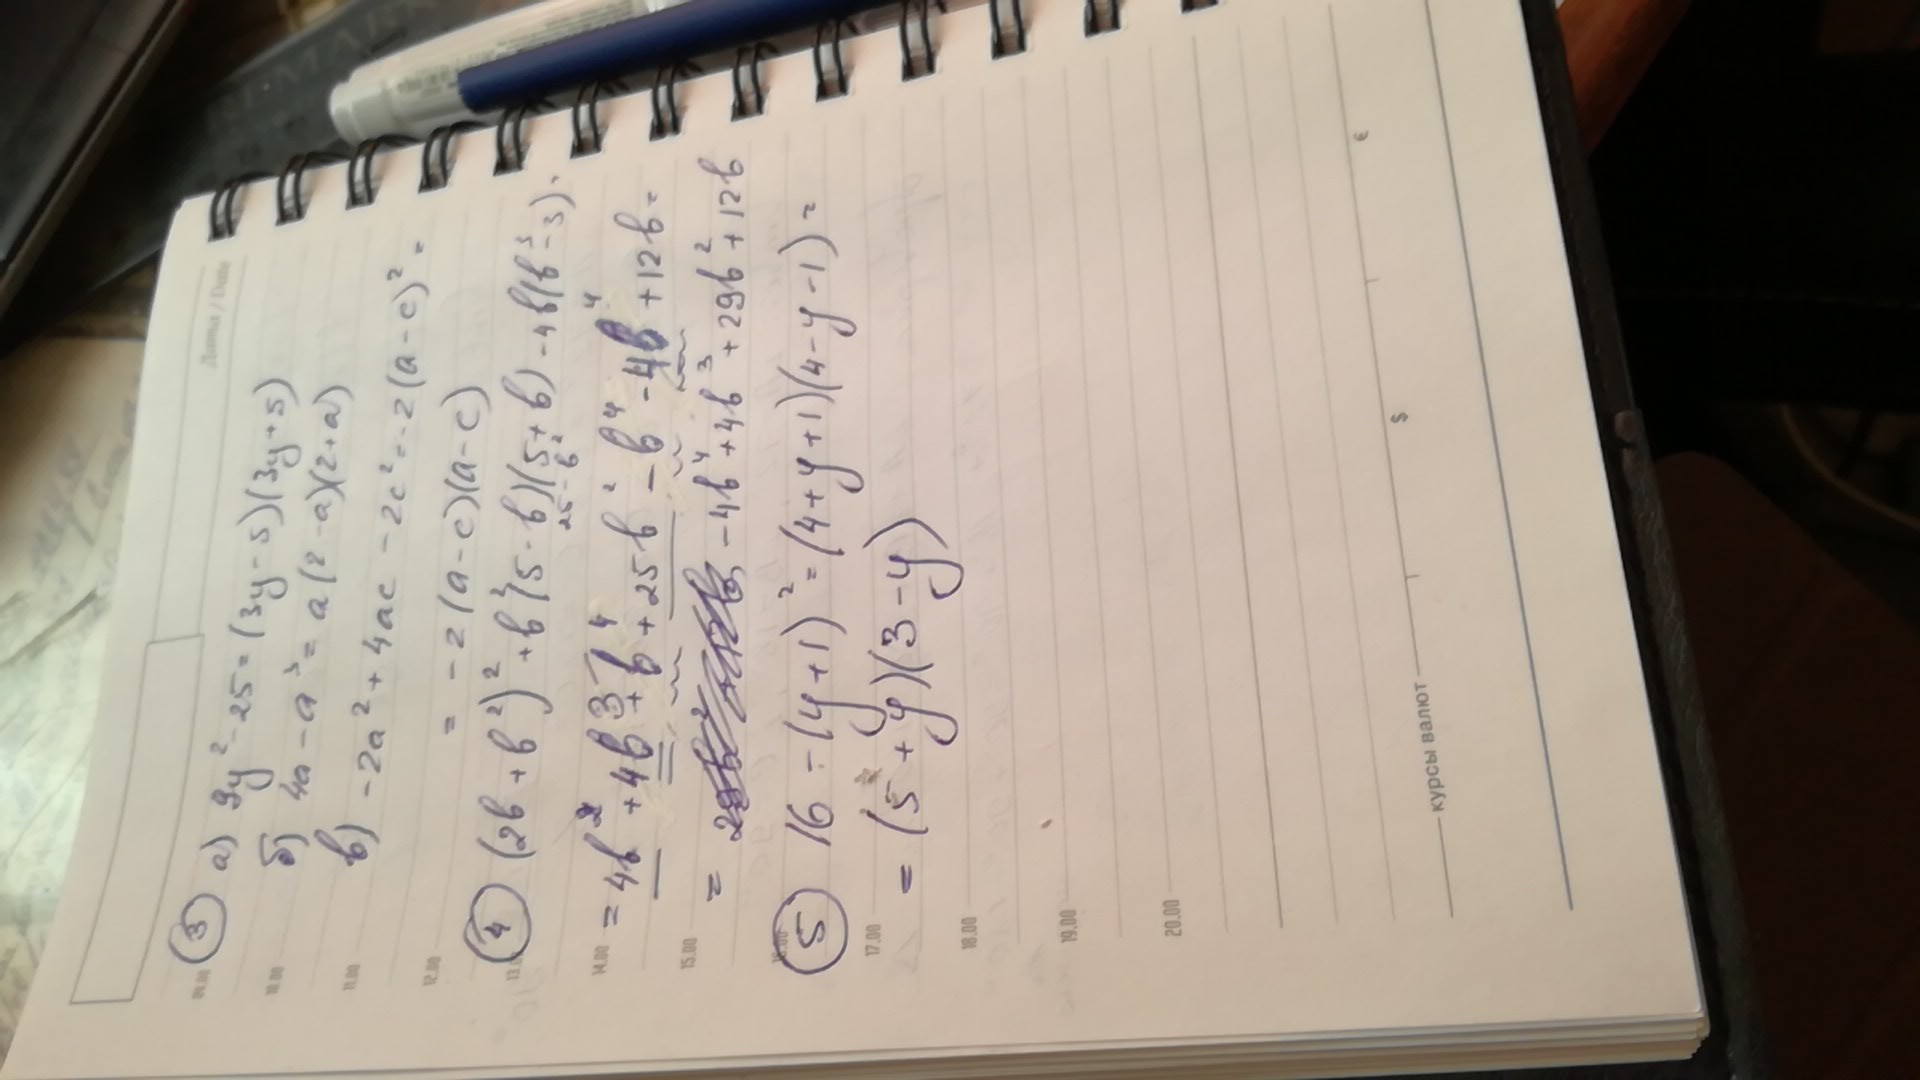 Дата / Date
09.00
③ а) 9y² - 25 = (3y - 5)(3y + 5)
10.00
б) 4a - a³ = a(2 - a)(2 + a)
11.00
в) -2a² + 4ac - 2c² = -2(a - c)² =
12.00
= -2(a - c)(a - c)
13.00
④ (2b + b²)² + b²(5 - b)(5 + b) - 4b(b³ - 3) =
25 - b²
14.00
= 4b² + 4b³ + b⁴ + 25b² - b⁴ - 4b⁴ + 12b =
15.00
= -4b⁴ + 4b³ + 29b² + 12b
16.00
⑤ 16 - (y + 1)² = (4 + y + 1)(4 - y - 1) =
17.00
= (5 + y)(3 - y)
18.00
19.00
20.00
курсы валют $ €